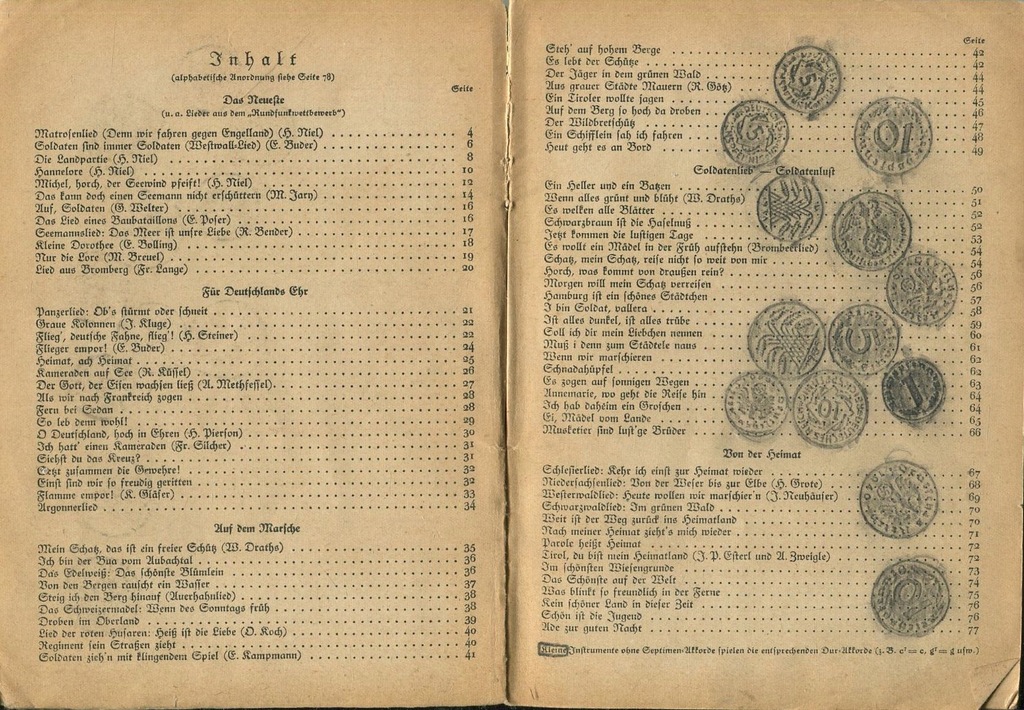 Inhalt
(alphabetische Anordnung siehe Seite 78)
Seite
Das Neueste
(u. a. Lieder aus dem „Rundfunkwettbewerb“)
Matrosenlied (Denn wir fahren gegen Engelland) (H. Niel) 4
Soldaten sind immer Soldaten (Westwall-Lied) (E. Buder) 6
Die Landpartie (H. Niel) 8
Hannelore (H. Niel) 10
Michel, horch, der Seewind pfeift! (H. Niel) 12
Das kann doch einen Seemann nicht erschüttern (M. Jary) 14
Auf, Soldaten (G. Welter) 16
Das Lied eines Baubataillons (E. Poser) 16
Seemannslied: Das Meer ist unsre Liebe (R. Bender) 17
Kleine Dorothee (E. Bolling) 18
Nur die Lore (M. Breuel) 19
Lied aus Bromberg (Fr. Lange) 20
Für Deutschlands Ehr
Panzerlied: Ob's stürmt oder schneit 21
Graue Kolonnen (J. Kluge) 22
Flieg', deutsche Fahne, flieg'! (H. Steiner) 22
Flieger empor! (E. Buder) 24
Heimat, ach Heimat 25
Kameraden auf See (R. Küssel) 26
Der Gott, der Eisen wachsen ließ (A. Methfessel) 27
Als wir nach Frankreich zogen 28
Fern bei Sedan 28
So leb denn wohl! 29
O Deutschland, hoch in Ehren (H. Pierson) 30
Ich hatt' einen Kameraden (Fr. Silcher) 31
Siehst du das Kreuz? 31
Setzt zusammen die Gewehre! 32
Einst sind wir so freudig geritten 32
Flamme empor! (K. Gläser) 33
Argonnerlied 34
Auf dem Marsche
Mein Schatz, das ist ein freier Schütz (W. Draths) 35
Ich bin der Bua vom Aubachtal 36
Das Edelweiß: Das schönste Blümlein 36
Von den Bergen rauscht ein Wasser 37
Steig ich den Berg hinauf (Auerhahnlied) 38
Das Schweizermadel: Wenn des Sonntags früh 38
Droben im Oberland 39
Lied der roten Husaren: Heiß ist die Liebe (O. Koch) 40
Regiment sein Straßen zieht 40
Soldaten zieh'n mit klingendem Spiel (E. Kampmann) 41
Seite
Steh' auf hohem Berge 42
Es lebt der Schütze 42
Der Jäger in dem grünen Wald 44
Aus grauer Städte Mauern (R. Götz) 44
Ein Tiroler wollte jagen 45
Auf dem Berg so hoch da droben 46
Der Wildbretschütz 47
Ein Schifflein sah ich fahren 48
Heut geht es an Bord 49
Soldatenlieb — Soldatenlust
Ein Heller und ein Batzen 50
Wenn alles grünt und blüht (W. Draths) 51
Es welken alle Blätter 52
Schwarzbraun ist die Haselnuß 52
Jetzt kommen die lustigen Tage 53
Es wollt ein Mädel in der Früh aufstehn (Brombeerlied) 54
Schatz, mein Schatz, reise nicht so weit von mir 54
Horch, was kommt von draußen rein? 56
Morgen will mein Schatz verreisen 56
Hamburg ist ein schönes Städtchen 57
I bin Soldat, vallera 58
Ist alles dunkel, ist alles trübe 59
Soll ich dir mein Liebchen nennen 60
Muß i denn zum Städtele naus 61
Wenn wir marschieren 62
Schnadahüpfel 62
Es zogen auf sonnigen Wegen 63
Annemarie, wo geht die Reise hin 64
Ich hab daheim ein Groschen 64
Ei, Mädel vom Lande 65
Musketier sind lust'ge Brüder 66
Von der Heimat
Schlesierlied: Kehr ich einst zur Heimat wieder 67
Niedersachsenlied: Von der Weser bis zur Elbe (H. Grote) 68
Westerwaldlied: Heute wollen wir marschier'n (J. Neuhäuser) 69
Schwarzwaldlied: Im grünen Wald 70
Weit ist der Weg zurück ins Heimatland 70
Nach meiner Heimat zieht's mich wieder 71
Parole heißt Heimat 72
Tirol, du bist mein Heimatland (J. P. Esterl und A. Zweigle) 72
Im schönsten Wiesengrunde 73
Das Schönste auf der Welt 74
Was blinkt so freundlich in der Ferne 75
Kein schöner Land in dieser Zeit 76
Schön ist die Jugend 76
Ade zur guten Nacht 77
Kleine Instrumente ohne Septimen-Akkorde spielen die entsprechenden Dur-Akkorde (z. B. c⁷ = c, g⁷ = g usw.)